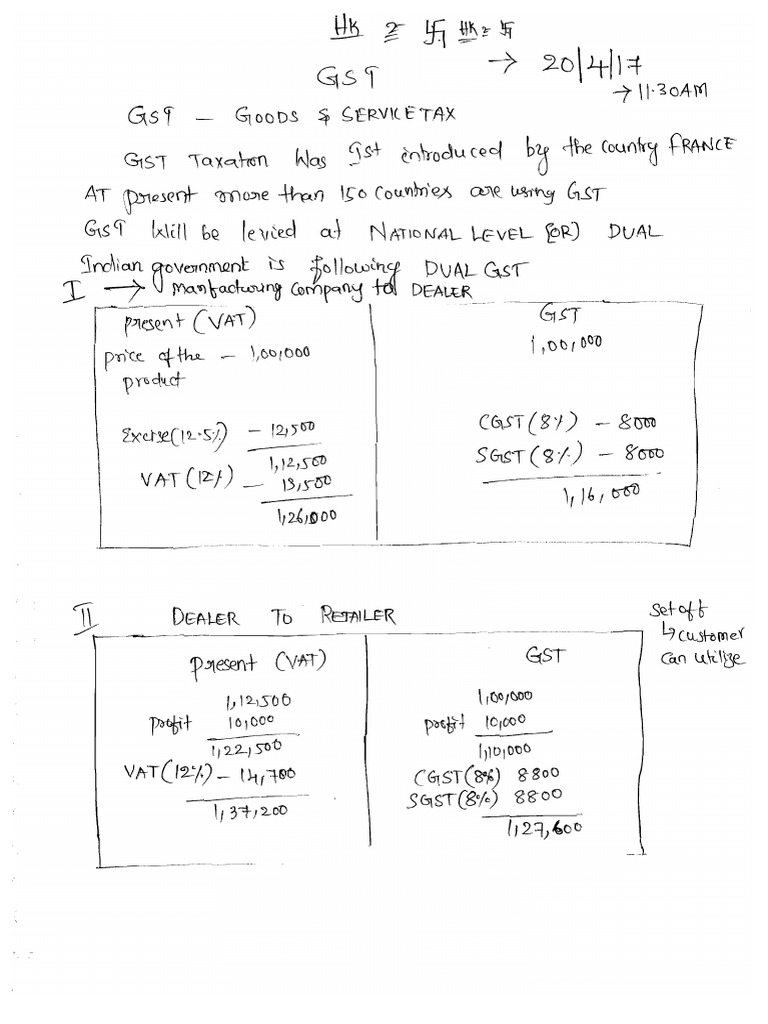 HK 2 卐 HK 2 卐
GST → 20/4/17
→ 11.30AM
GST – GOODS & SERVICE TAX
GST Taxation was Ist introduced by the country FRANCE
AT present more than 150 Countries are using GST
GST Will be levied at NATIONAL LEVEL (OR) DUAL
Indian government is following DUAL GST
I → Manfacturing Company to DEALER
present (VAT) GST
price of the – 1,00,000 1,00,000
product
Excise(12.5%) – 12,500 CGST(8%) – 8000
1,12,500 SGST(8%) – 8000
VAT(12%) – 13,500
1,26,000 1,16,000
II DEALER TO RETAILER
Set off
↳ customer
can utilize
present (VAT) GST
1,12,500 1,00,000
profit 10,000 profit 10,000
1,22,500 1,10,000
VAT(12%) – 14,700 CGST(8%) 8800
SGST(8%) 8800
1,37,200 1,27,600